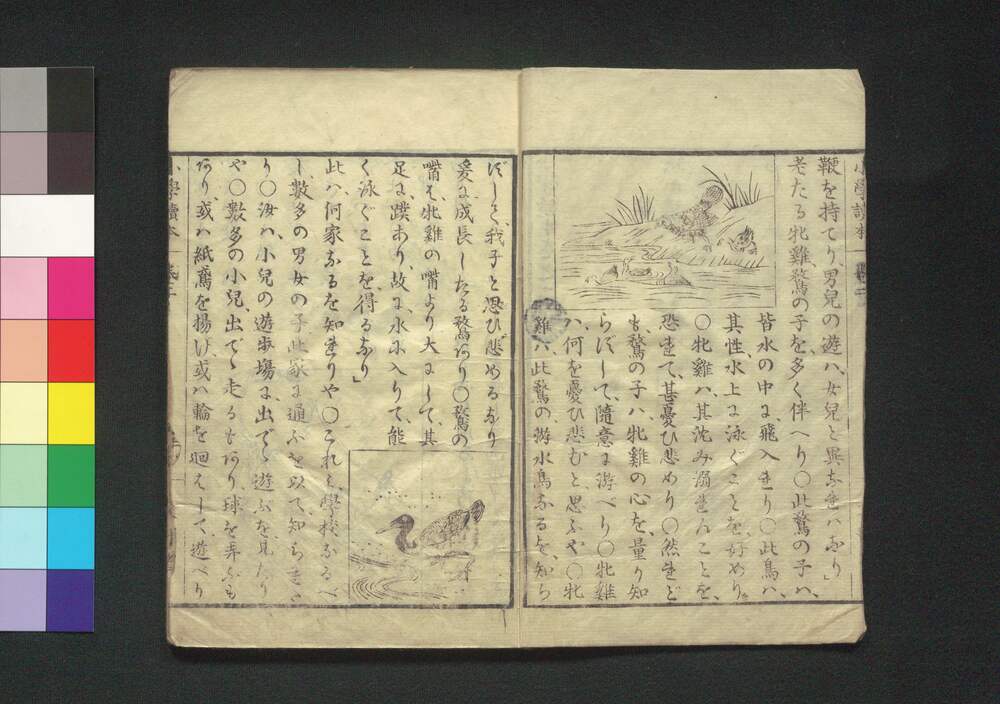 鞭を持てり、男兒の遊ハ、女兒と異なれハなり」
老たる牝雞鶩の子を多く伴へり○此鶩の子ハ、
皆水の中に飛入れり○此鳥ハ、
其性水上に泳ぐことを、好めり、
○牝雞ハ、其沈み溺れんことを、
恐れて、甚憂ひ悲めり○然れど
も、鶩の子ハ牝雞の心を、量り知
らずして、隨意に游べり○牝雞
ハ、何を憂ひ悲むと思ふや○牝
雞ハ、此鶩の游水鳥なるを、知ら
ずして、我子と思ひ悲めるなり
爰に成長したる鶩あり○鶩の
嘴を、牝雞の嘴より大にして、其
足に、蹼あり、故に、水に入りて、能
く泳ぐことを得るなり」
此ハ、何家なるを知れりや○これハ、學校なるべ
し、數多の男女の子此家に通ふを以て知られた
り○汝ハ、小兒の遊歩場に出でゝ遊ぶを見たり
や○數多の小兒、出でゝ走るもあり球を弄ぶも
あり、或ハ紙鳶を揚げ、或ハ輪を廻はして、遊べり
小學讀本